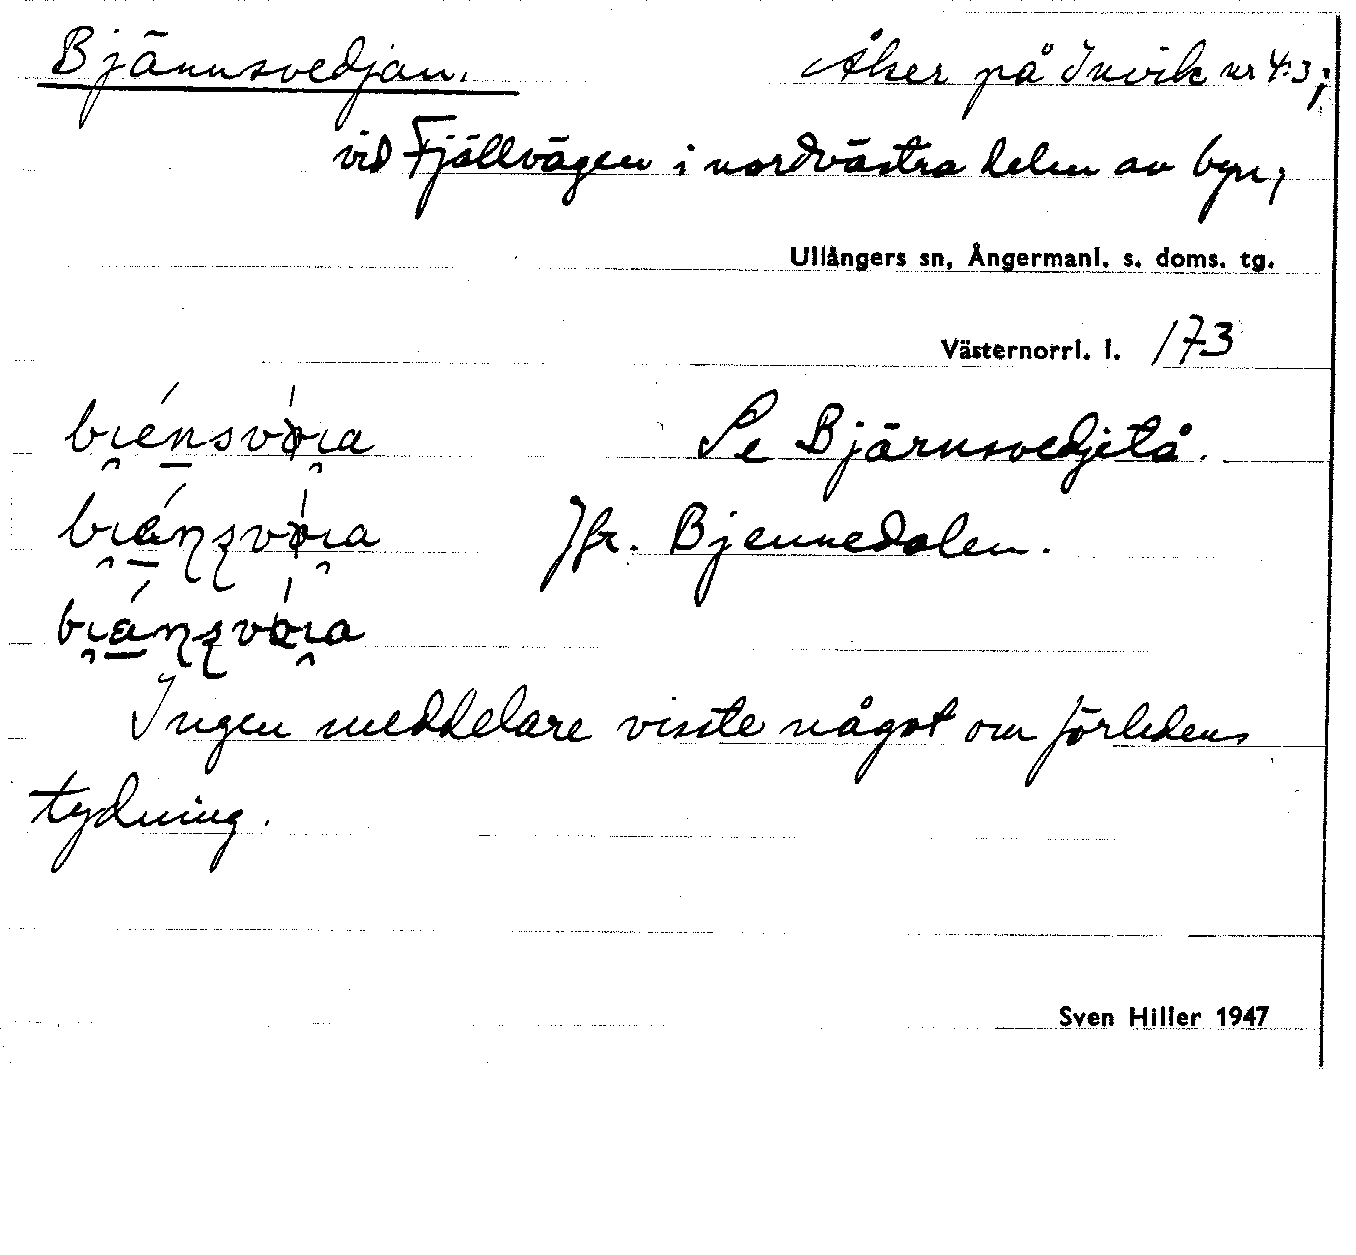 Bjännsvedjan. Åker på Invik nr 4:3;
vid Fjällvägen i nordvästra delen av byn;
Ullångers sn, Ångermanl. s. doms. tg.
Västernorrl. l. 173
Se Bjärnsvedjetå.
Jfr. Bjennedalen.
Ingen meddelare visste något om förledens
tydning.
Sven Hiller 1947